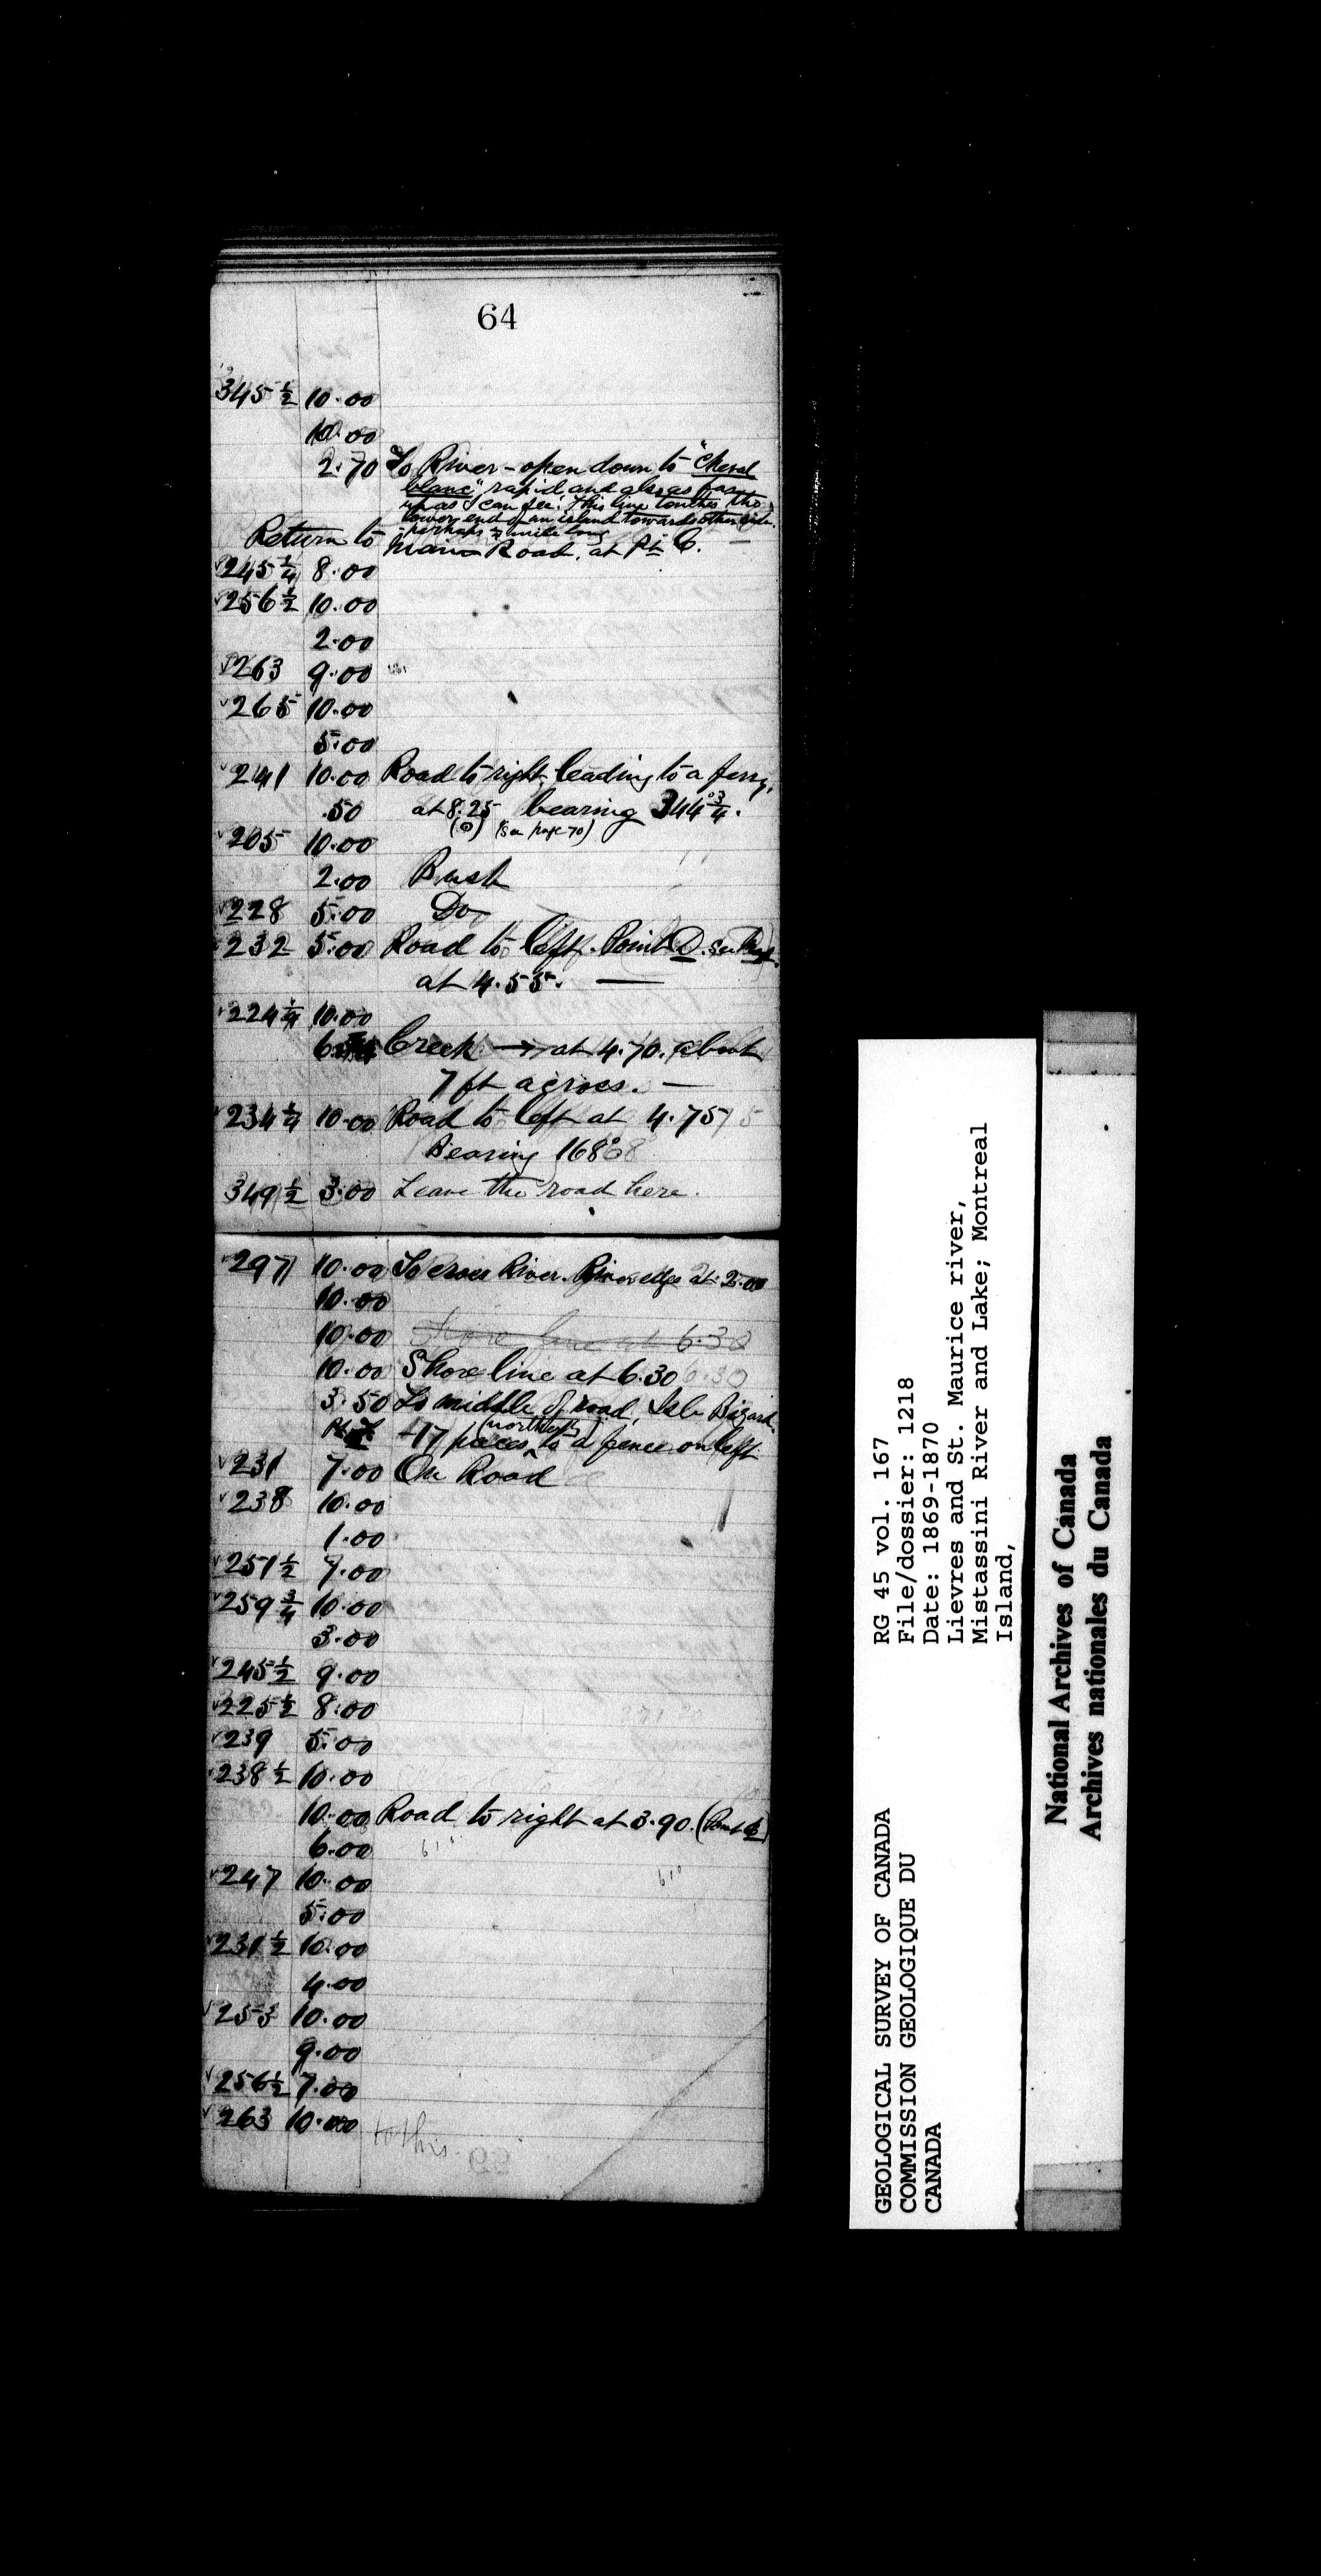 64
345 1/2 10.00
10.00
2.70 To River - open down to "Cheval
blanc" rapid and also as far
up as I can see. This line touches the
lower end of an island towards other side.
perhaps 1/2 mile long
Return to Main Road, at Pt. C.
245 1/4 8.00
256 1/2 10.00
2.00
263 9.00
265 10.00
5.00
241 10.00 Road to right leading to a ferry,
.50 at 8.25 bearing 344° 3/4.
(See page 70)
205 10.00
2.00 Bush
228 5.00 Do
232 5.00 Road to left. Point D. See
at 4.55. —
224 1/4 10.00
6 Creek → at 4.70. about
7 ft across. —
234 1/4 10.00 Road to left at 4.75
Bearing 168°
349 1/2 3.00 Leave the road here.
297 10.00 To cross River. River edge at 2.00
10.00
10.00 Shore line at 6.30
10.00 Shore line at 6.30
3.50 To middle of road, Isle Bizard.
17 paces (northerly) to a fence on left
231 7.00 On Road
238 10.00
1.00
251 1/2 7.00
259 3/4 10.00
3.00
245 1/2 9.00
225 1/2 8.00
239 5.00
238 1/2 10.00
10.00 Road to right at 3.90. (Point
6.00
247 10.00
5.00
231 1/2 10.00
4.00
253 10.00
9.00
256 1/2 7.00
263 10.00
to this
GEOLOGICAL SURVEY OF CANADA
COMMISSION GEOLOGIQUE DU
CANADA
RG 45 vol. 167
File/dossier: 1218
Date: 1869-1870
Lievres and St. Maurice river,
Mistassini River and Lake; Montreal
Island,
National Archives of Canada
Archives nationales du Canada